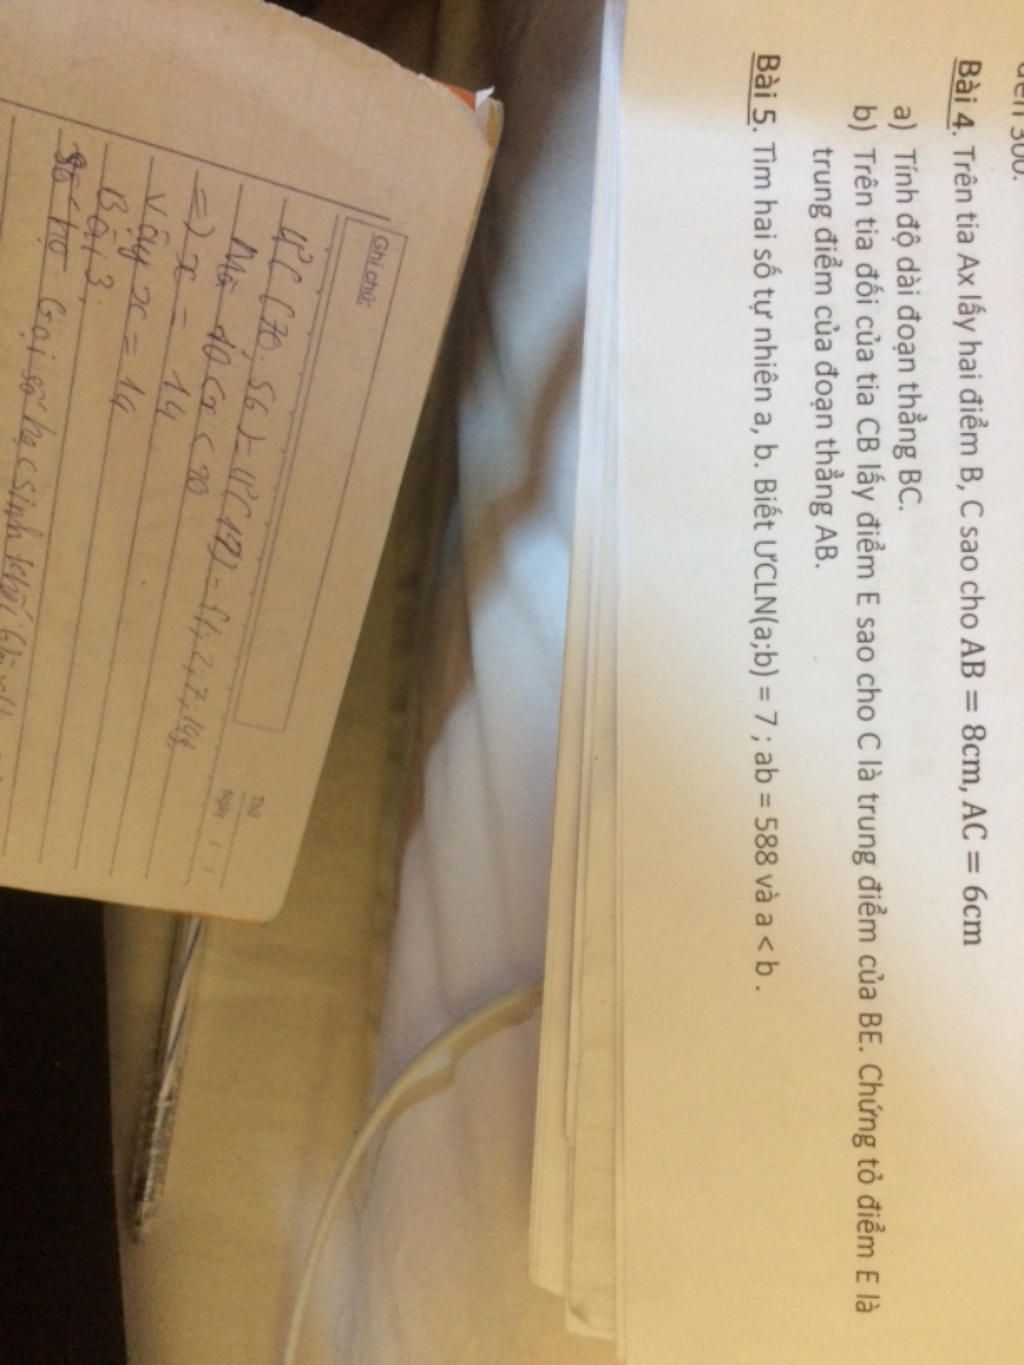 đến 300.
Bài 4. Trên tia Ax lấy hai điểm B, C sao cho AB = 8cm, AC = 6cm
a) Tính độ dài đoạn thẳng BC.
b) Trên tia đối của tia CB lấy điểm E sao cho C là trung điểm của BE. Chứng tỏ điểm E là
trung điểm của đoạn thẳng AB.
Bài 5. Tìm hai số tự nhiên a, b. Biết ƯCLN(a;b) = 7 ; ab = 588 và a < b .
Ghi chú:
Thứ
Ngày
ƯC (70, 56) = Ư(14) = {1, 2, 7, 14}
Mà 10 < x < 20
=> x = 14
Vậy x = 14
Bài 3.
Gọi số học sinh khối 6